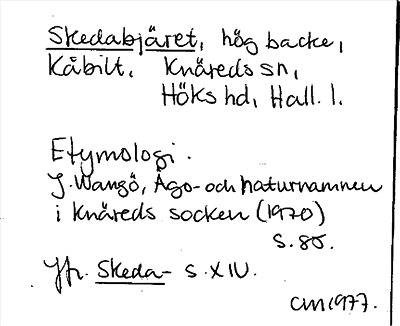 Skedabjäret, hög backe,
Kåbilt. Knäreds sn,
Höks hd, Hall. l.
Etymologi.
J. Wangö, Ägo- och naturnamnen
i Knäreds socken (1970)
s. 85.
Jfr. Skeda- s. XIV.
CM 1977.